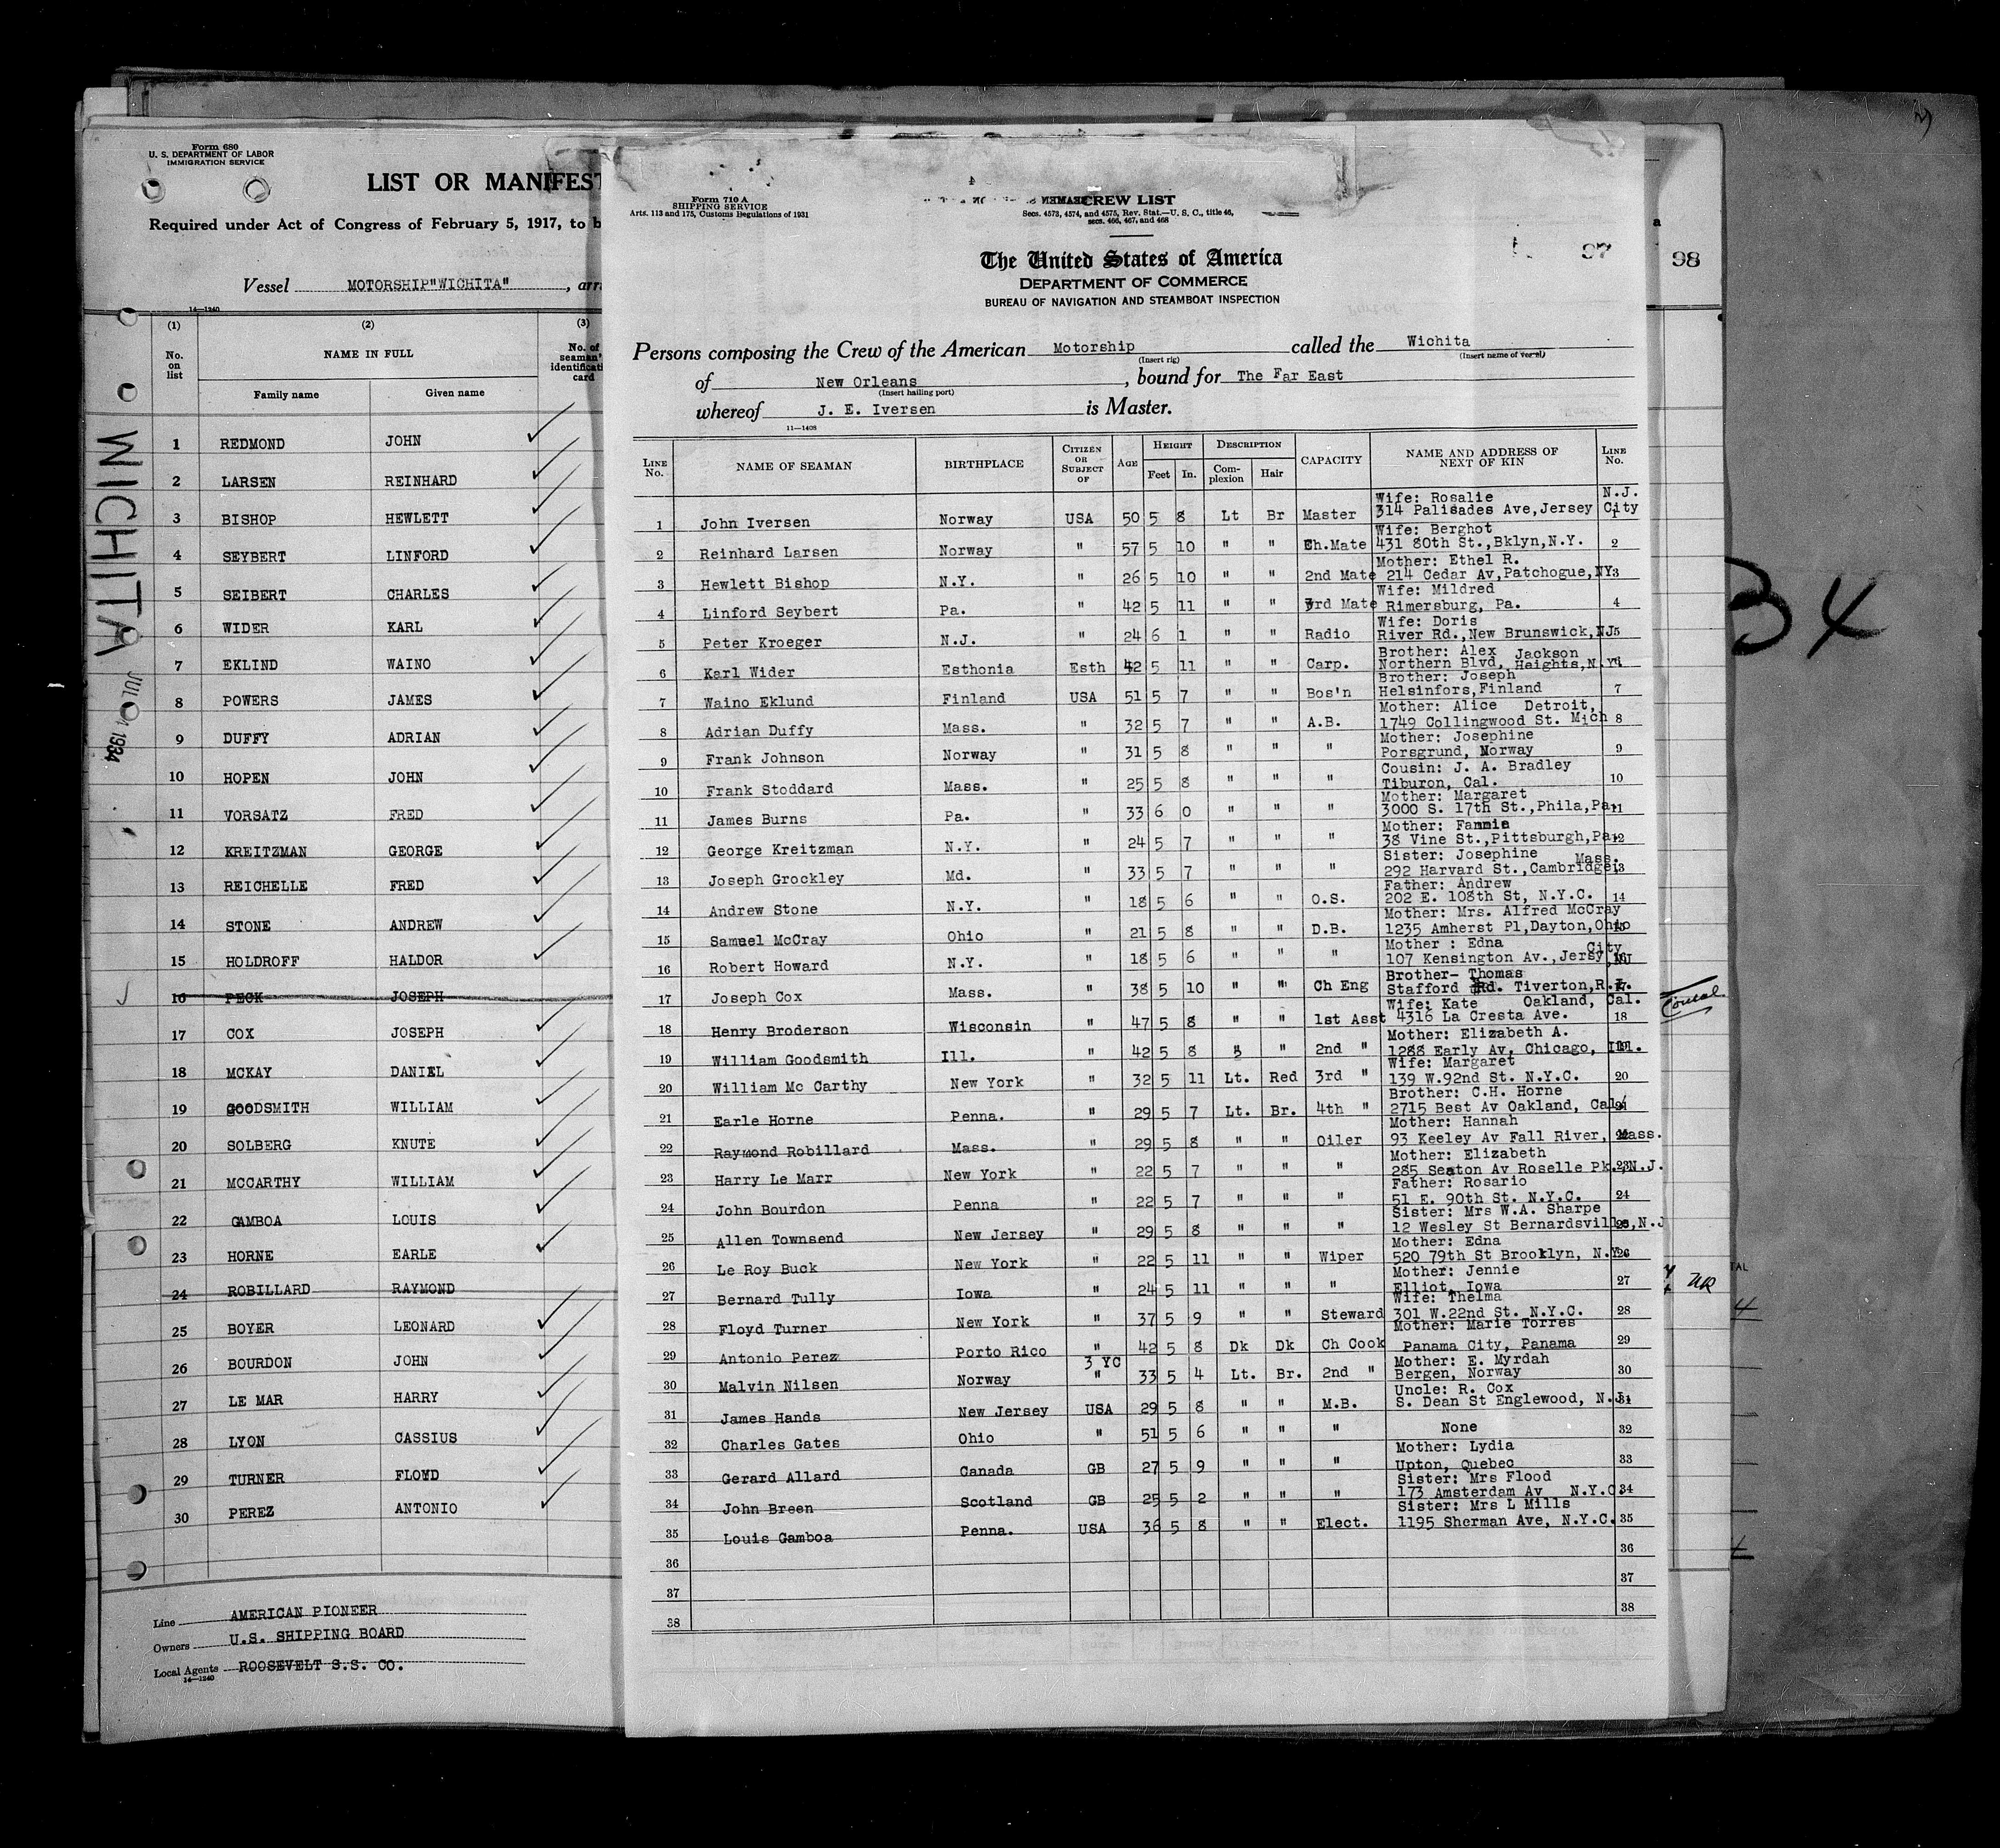 Form 680
U. S. DEPARTMENT OF LABOR
IMMIGRATION SERVICE
LIST OR MANIFEST
Required under Act of Congress of February 5, 1917, to b
Vessel MOTORSHIP"WICHITA" , arr
14—1240
(1) (2) (3)
No. on list NAME IN FULL No. of seaman's identification card
Family name Given name
1 REDMOND JOHN
2 LARSEN REINHARD
3 BISHOP HEWLETT
4 SEYBERT LINFORD
5 SEIBERT CHARLES
6 WIDER KARL
7 EKLIND WAINO
8 POWERS JAMES
9 DUFFY ADRIAN
10 HOPEN JOHN
11 VORSATZ FRED
12 KREITZMAN GEORGE
13 REICHELLE FRED
14 STONE ANDREW
15 HOLDROFF HALDOR
16 PECK JOSEPH
17 COX JOSEPH
18 MCKAY DANIEL
19 GOODSMITH WILLIAM
20 SOLBERG KNUTE
21 MCCARTHY WILLIAM
22 GAMBOA LOUIS
23 HORNE EARLE
24 ROBILLARD RAYMOND
25 BOYER LEONARD
26 BOURDON JOHN
27 LE MAR HARRY
28 LYON CASSIUS
29 TURNER FLOYD
30 PEREZ ANTONIO
Line AMERICAN PIONEER
Owners U.S. SHIPPING BOARD
Local Agents ROOSEVELT S.S. CO.
14—1240
WICHITA
JUL 1934
Form 710 A
SHIPPING SERVICE
Arts. 113 and 175, Customs Regulations of 1931
CREW LIST
Secs. 4573, 4574, and 4575, Rev. Stat.—U. S. C., title 46,
secs. 466, 467, and 468
The United States of America
DEPARTMENT OF COMMERCE
BUREAU OF NAVIGATION AND STEAMBOAT INSPECTION
97
98
Persons composing the Crew of the American Motorship called the Wichita
(Insert rig) (Insert name of vessel)
of New Orleans , bound for The Far East
(Insert hailing port)
whereof J. E. Iversen is Master.
11—1408
LINE No. NAME OF SEAMAN BIRTHPLACE CITIZEN OR SUBJECT OF AGE HEIGHT DESCRIPTION CAPACITY NAME AND ADDRESS OF NEXT OF KIN LINE No.
Feet In. Complexion Hair
Wife: Rosalie N.J.
1 John Iversen Norway USA 50 5 8 Lt Br Master 314 Palisades Ave,Jersey City 1
Wife: Berghot
2 Reinhard Larsen Norway " 57 5 10 " " Ch.Mate 431 80th St.,Bklyn,N.Y. 2
Mother: Ethel R.
3 Hewlett Bishop N.Y. " 26 5 10 " " 2nd Mate 214 Cedar Av,Patchogue,NY 3
Wife: Mildred
4 Linford Seybert Pa. " 42 5 11 " " 3rd Mate Rimersburg, Pa. 4
Wife: Doris
5 Peter Kroeger N.J. " 24 6 1 " " Radio River Rd.,New Brunswick,NJ 5
Brother: Alex Jackson
6 Karl Wider Esthonia Esth 42 5 11 " " Carp. Northern Blvd, Heights,N.Y.
Brother: Joseph
7 Waino Eklund Finland USA 51 5 7 " " Bos'n Helsinfors,Finland 7
Mother: Alice Detroit,
8 Adrian Duffy Mass. " 32 5 7 " " A.B. 1749 Collingwood St. Mich 8
Mother: Josephine
9 Frank Johnson Norway " 31 5 8 " " " Porsgrund, Norway 9
Cousin: J. A. Bradley
10 Frank Stoddard Mass. " 25 5 8 " " " Tiburon, Cal. 10
Mother: Margaret
11 James Burns Pa. " 33 6 0 " " " 3000 S. 17th St.,Phila,Pa. 11
Mother: Fannie
12 George Kreitzman N.Y. " 24 5 7 " " " 38 Vine St.,Pittsburgh,Pa. 12
Sister: Josephine Mass.
13 Joseph Grockley Md. " 33 5 7 " " " 292 Harvard St.,Cambridge, 13
Father: Andrew
14 Andrew Stone N.Y. " 18 5 6 " " O.S. 202 E. 108th St, N.Y.C. 14
Mother: Mrs. Alfred McCray
15 Samuel McCray Ohio " 21 5 8 " " D.B. 1235 Amherst Pl,Dayton,Ohio
Mother : Edna City
16 Robert Howard N.Y. " 18 5 6 " " " 107 Kensington Av.,Jersy ,NJ
Brother- Thomas
17 Joseph Cox Mass. " 38 5 10 " " Ch Eng Stafford Rd. Tiverton,R.I.
Wife: Kate Oakland, Cal.
18 Henry Broderson Wisconsin " 47 5 8 " " 1st Asst 4316 La Cresta Ave. 18
Mother: Elizabeth A.
19 William Goodsmith Ill. " 42 5 8 " " 2nd " 1288 Early Av, Chicago, Ill.
Wife: Margaret
20 William Mc Carthy New York " 32 5 11 Lt. Red 3rd " 139 W.92nd St. N.Y.C. 20
Brother: C.H. Horne
21 Earle Horne Penna. " 29 5 7 Lt. Br. 4th " 2715 Best Av Oakland, Cal. 21
Mother: Hannah
22 Raymond Robillard Mass. " 29 5 8 " " Oiler 93 Keeley Av Fall River, Mass.
Mother: Elizabeth
23 Harry Le Marr New York " 22 5 7 " " " 285 Seaton Av Roselle Pk.,N.J. 23
Father: Rosario
24 John Bourdon Penna " 22 5 7 " " " 51 E. 90th St. N.Y.C. 24
Sister: Mrs W.A. Sharpe
25 Allen Townsend New Jersey " 29 5 8 " " " 12 Wesley St Bernardsville,N.J
Mother: Edna
26 Le Roy Buck New York " 22 5 11 " " Wiper 520 79th St Brooklyn, N.Y. 26
Mother: Jennie
27 Bernard Tully Iowa " 24 5 11 " " " Elliot, Iowa 27
Wife: Thelma
28 Floyd Turner New York " 37 5 9 " " Steward 301 W.22nd St. N.Y.C. 28
Mother: Marie Torres
29 Antonio Perez Porto Rico " 42 5 8 Dk Dk Ch Cook Panama City, Panama 29
3 YC Mother: E. Myrdah
30 Malvin Nilsen Norway " 33 5 4 Lt. Br. 2nd " Bergen, Norway 30
Uncle: R. Cox
31 James Hands New Jersey USA 29 5 8 " " M.B. S. Dean St Englewood, N.J. 31
32 Charles Gates Ohio " 51 5 6 " " " None 32
Mother: Lydia
33 Gerard Allard Canada GB 27 5 9 " " " Upton, Quebec 33
Sister: Mrs Flood
34 John Breen Scotland GB 25 5 2 " " " 173 Amsterdam Av N.Y.C 34
Sister: Mrs L Mills
35 Louis Gamboa Penna. USA 36 5 8 " " Elect. 1195 Sherman Ave, N.Y.C. 35
36 36
37 37
38 38
34